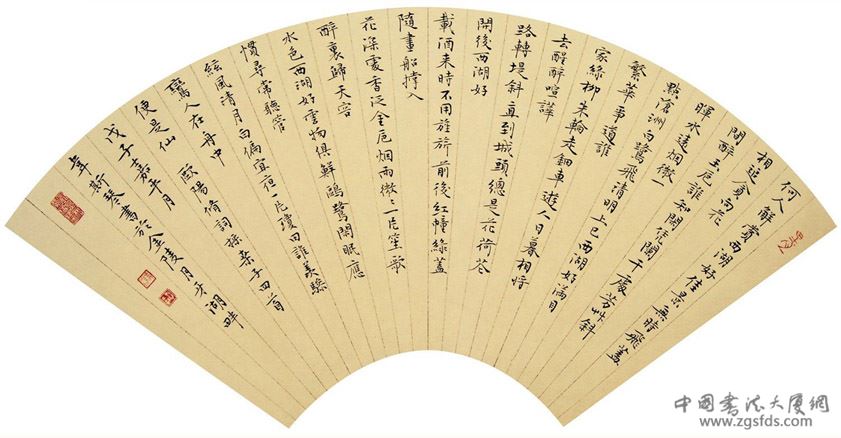 何人解賞西湖好佳景無時飛蓋
相追貪向花
間醉玉卮誰知閒凭闌干處芳艸斜
暉水遠烟微一
點滄洲白鷺飛清明上巳西湖好滿目
繁華爭道誰
家綠柳朱輪走鈿車遊人日暮相將
去醒醉喧譁
路轉堤斜直到城頭總是花荷花
開後西湖好
載酒来時不用旌旂前後紅幢綠蓋
隨畫船撐入
花深處香泛金卮烟雨微〻一片笙歌
醉裏歸天容
水色西湖好雲物俱鮮鷗鷺閒眠應
慣尋常聽管
絃風清月白偏宜夜一片瓊田誰羡驂
鸞人在舟中
便是仙 歐陽脩詞採桑子四首
戊子嘉平月
斯琴書於金陵月牙湖畔
中國書法大廈網
www.zgsfds.com